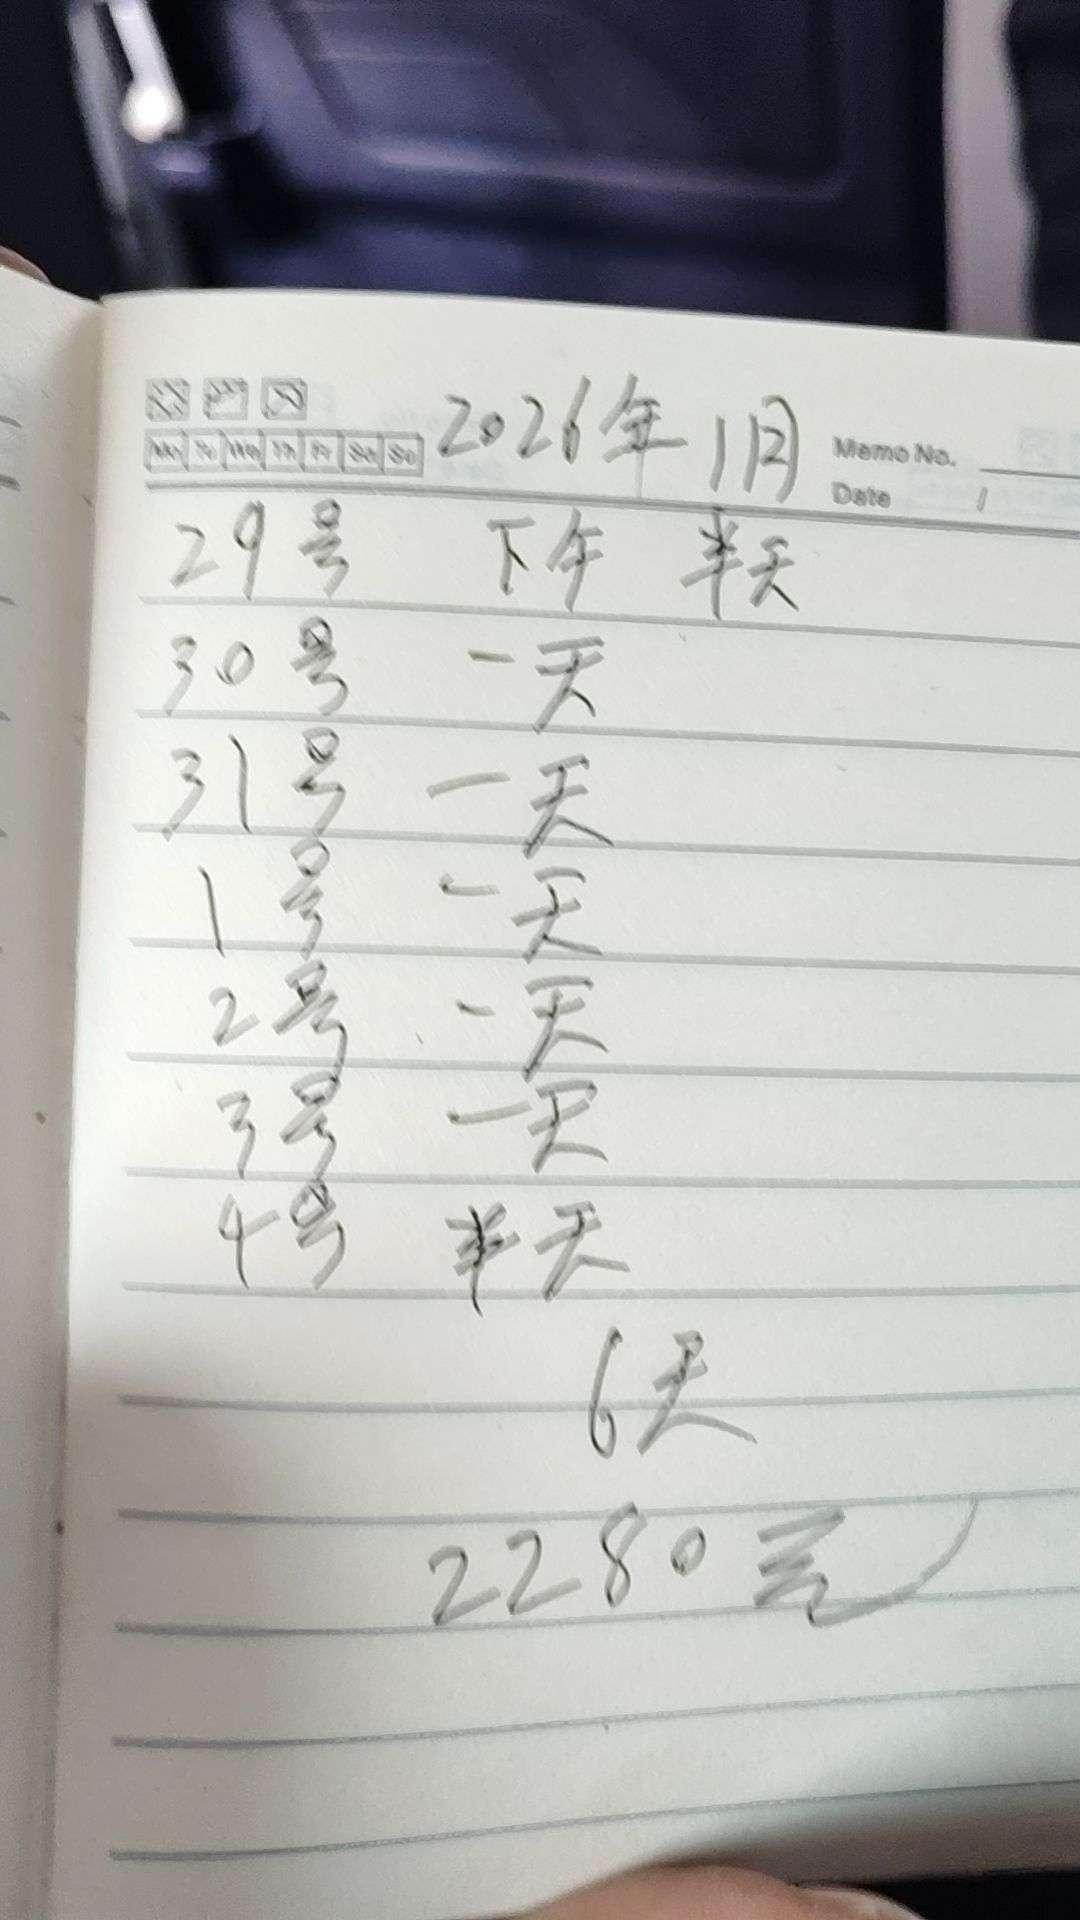 2026年 1月
Memo No.
Date /
29号 下午 半天
30号 一天
31号 一天
1号 一天
2号 一天
3号 一天
4号 半天
6天
2280元